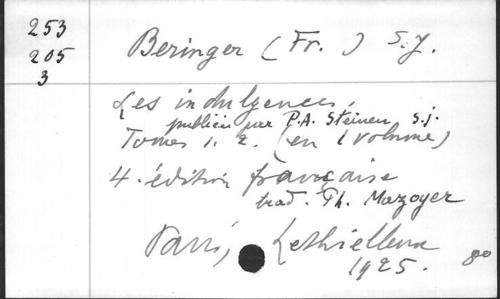 253
205
3
Beringer (Fr.) S.J.
Les indulgences,
publiées par P.A. Steinen S.j.
Tomes 1. 2. (en 1 volume)
4. édition française
trad. Th. Mazoyer
Paris, Lethielleux
1925.
80